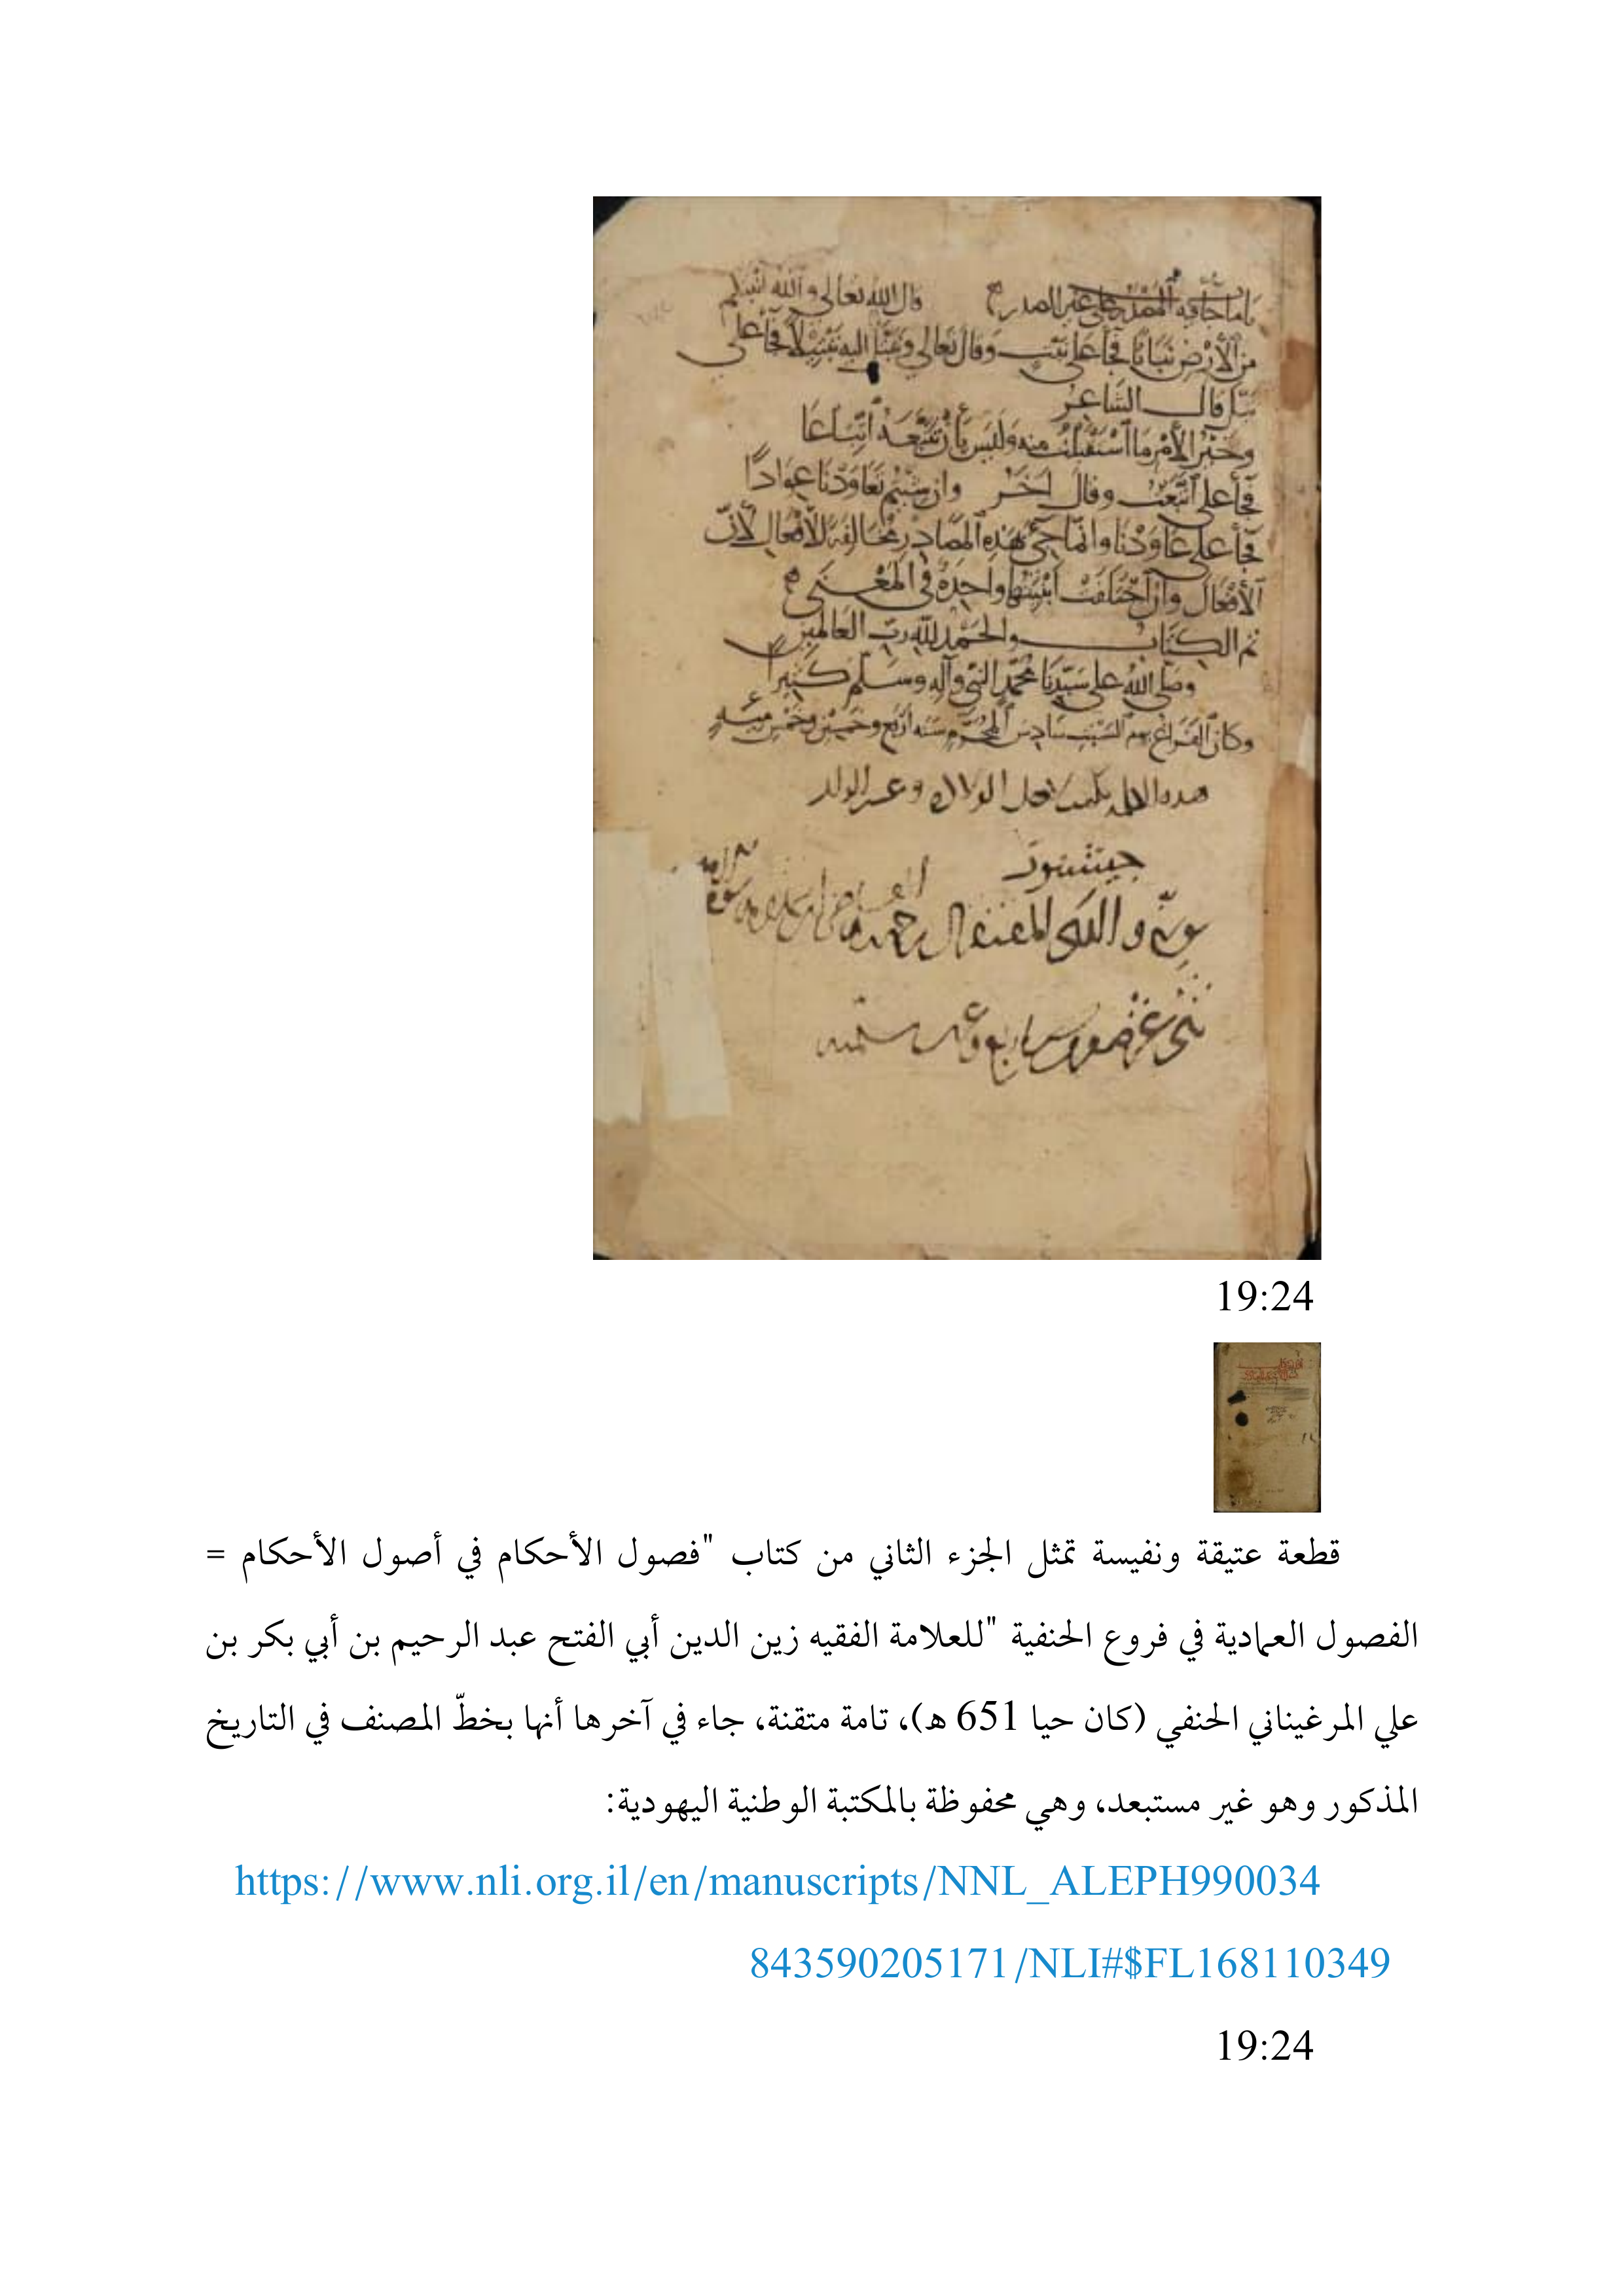 باب ما جاء فيه المصدر على غير الصدر قال الله تعالى والله انبتكم
من الأرض نباتا فجاء على نبت وقال تعالى وتبتل اليه تبتيلا فجاء على
بتل قال الشاعر
وخير الأمر ما استقبلت منه وليس بأن تتبعه اتباعا
فجاء على اتبعت وقال اخر وان شيتم تعاودنا عوادا
فجاء على عاودنا وانما تجئ هذه المصادر مخالفة للأفعال لأن
الأفعال وان اختلفت ابنيتها واحدة في المعنى
تم الكتاب والحمد لله رب العالمين
وصلى الله على سيدنا محمد النبي وآله وسلم كثيرا
وكان الفراغ يوم السبت سادس المحرم سنة اربع وخمسين وخمس مئة
19:24
قطعة عتيقة ونفيسة تمثل الجزء الثاني من كتاب "فصول الأحكام في أصول الأحكام =
الفصول العمادية في فروع الحنفية "للعلامة الفقيه زين الدين أبي الفتح عبد الرحيم بن أبي بكر بن
علي المرغيناني الحنفي (كان حيا 651 هـ)، تامة متقنة، جاء في آخرها أنها بخطّ المصنف في التاريخ
المذكور وهو غير مستبعد، وهي محفوظة بالمكتبة الوطنية اليهودية:
https://www.nli.org.il/en/manuscripts/NNL_ALEPH990034
843590205171/NLI#$FL168110349
19:24